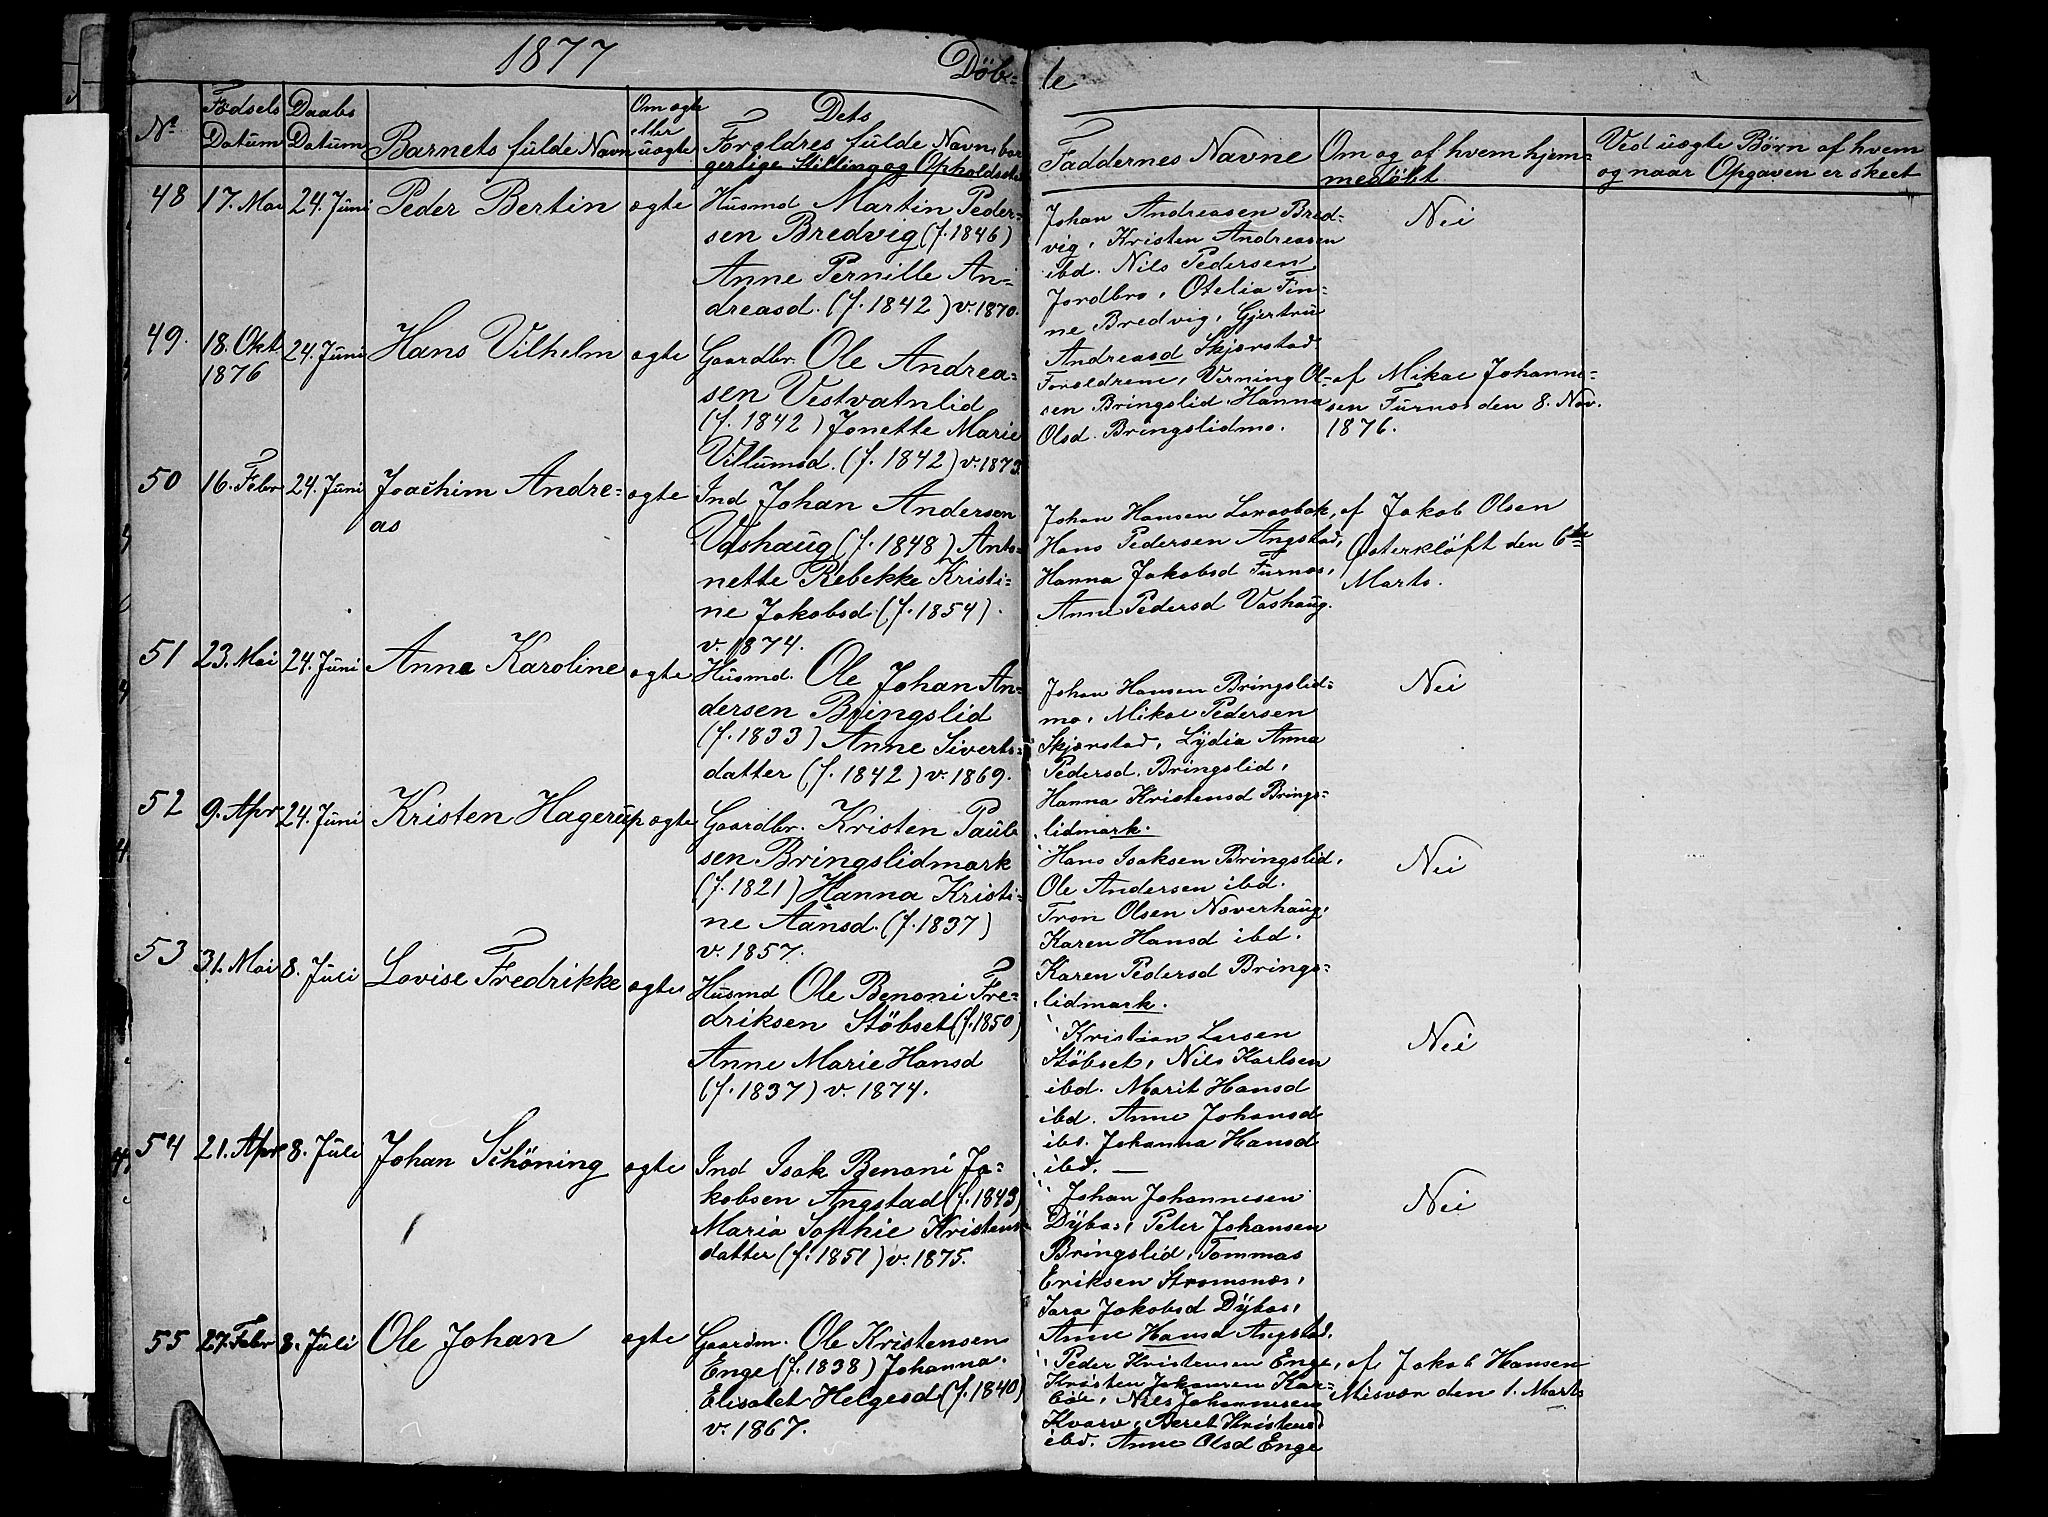 1877
Döb- le
No
Fødsels Datum
Daabs Datum
Barnets fulde Navn
Om ægte eller uægte
Dets Forældres fulde Navn, borgerlige Stilling og Opholdssted
Faddernes Navne
Om og af hvem hjemmedøbt.
Ved uægte Børn af hvem og naar Opgaven er skeet
48 17. Mai 24. Juni Peder Bertin ægte
Husmd Martin Peder-
sen Bredvig (f. 1846)
Anne Pernille An-
dreasd. (f. 1842) v. 1870.
Johan Andreasen Bred-
vig, Kristen Andreasen
ibd. Nils Pedersen
Jordbro, Otelia Fin-
ne Bredvig, Gjertru
Andreasd Skjærstad
Nei
49. 18. Okt 1876 24. Juni Hans Vilhelm ægte
Gaardbr. Ole Andrea-
sen Vestvatnlid
(f. 1842) Jonette Marie
Villumsd. (f. 1842) v. 1873.
Forældrene, Verning Ol-
sen Bringslid. Hanna
Olsd. Bringslidmo.
af Mikal Johanne-
sen Furnes den 8. Nov.
1876.
50 16. Febr 24. Juni Joachim Andre-
as
ægte
Ind Johan Andersen
Vashaug (f. 1848) Anto-
nette Rebekke Kristi-
ne Jakobsd. (f. 1854).
v. 1874.
Johan Hansen
Hans Pedersen Angstad,
Hanna Jakobsd Furnes,
Anne Pedersd Vashaug.
af Jakob Olsen
Østerkløft den 6te
Marts.
51 23. Mai 24. Juni Anna Karoline ægte
Husmd. Ole Johan An-
dersen Bringslid
(f. 1833) Anne Siverts-
datter (f. 1842) v. 1869.
Johan Hansen Bringslid-
mo, Mikal Pedersen
Skjærstad, Lydia Anna
Pedersd. Bringslid,
Hanna Kristensd Brings-
lidmark.
Nei
52 9. Apr 24. Juni Kristen Hagerup ægte
Gaardbr. Kristen Paul-
sen Bringslidmark
(f. 1821) Hanna Kristi-
ne Aansd. (f. 1837)
v. 1857.
Hans Isaksen Bringslid,
Ole Andersen ibd.
Tron Olsen Næverhaug,
Karen Hansd ibd.
Karen Pedersd Brings-
lidmark.
Nei
53 31. Mai 8. Juli Lovise Fredrikke ægte
Husmd Ole Benoni Fre-
driksen Støbset (f. 1850)
Anne Marie Hansd
(f. 1837) v. 1874.
Kristian Larsen
Støbset, Nils Karlsen
ibd. Marit Hansd
ibd. Anne Johansd
ibd. Johanna Hansd
ibd. —
Nei
54 21. Apr 8. Juli Johan Schöning ægte
Ind Isak Benoni Ja-
kobsen Angstad (f. 1843)
Maria Sophie Kristens-
datter (f. 1851) v. 1875.
Johan Johannesen
Dybos, Peter Johansen
Bringslid, Tommas
Eriksen Strømsnes,
Sara Jakobsd Dybos,
Anne Hansd Angstad.
Nei
55 27. Febr 8. Juli Ole Johan ægte
Gaardm. Ole Kristensen
Enge (f. 1838) Johanna
Elisabet Helgesd (f. 1840)
v. 1867.
Peder Kristensen Enge,
Kristen Johansen Kar-
bøl, Nils Johannesen
Kvarv, Beret Kristensd
ibd. Anne Olsd Enge
af Jakob Hansen
Misvær den 1. Marts